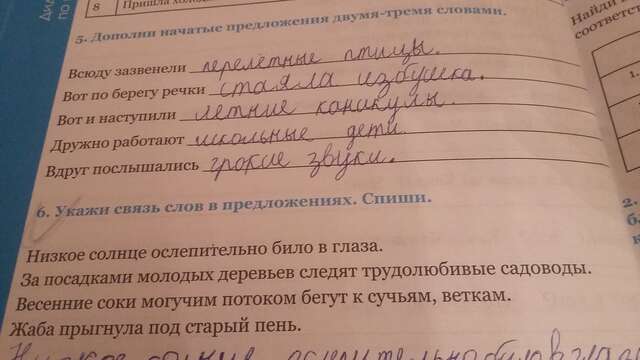 8 Пришла холо
Найди
соответст
5. Дополни начатые предложения двумя-тремя словами.
Всюду зазвенели перелётные птицы.
Вот по берегу речки стаяла избушка.
Вот и наступили летние каникулы.
Дружно работают школьные дети.
Вдруг послышались грокие звуки.
1.
6. Укажи связь слов в предложениях. Спиши.
2.
Низкое солнце ослепительно било в глаза.
За посадками молодых деревьев следят трудолюбивые садоводы.
Весенние соки могучим потоком бегут к сучьям, веткам.
Жаба прыгнула под старый пень.
Низкое солнце ослепительно било в глаза